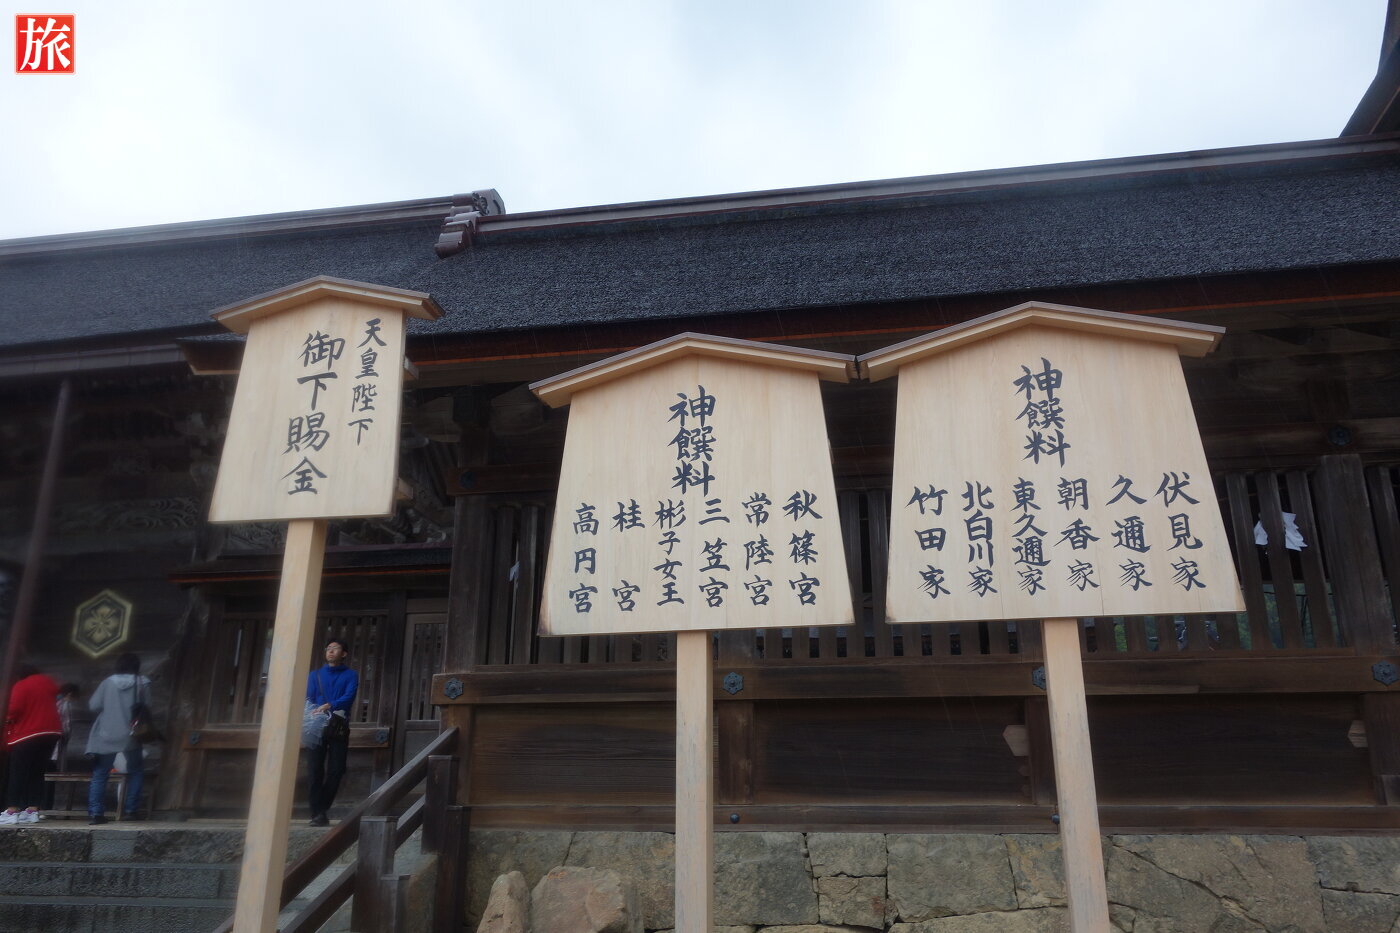 旅
天皇陛下
御下賜金
神饌料
秋篠宮
常陸宮
三笠宮
彬子女王
桂宮
高円宮
神饌料
伏見家
久邇家
朝香家
東久邇家
北白川家
竹田家